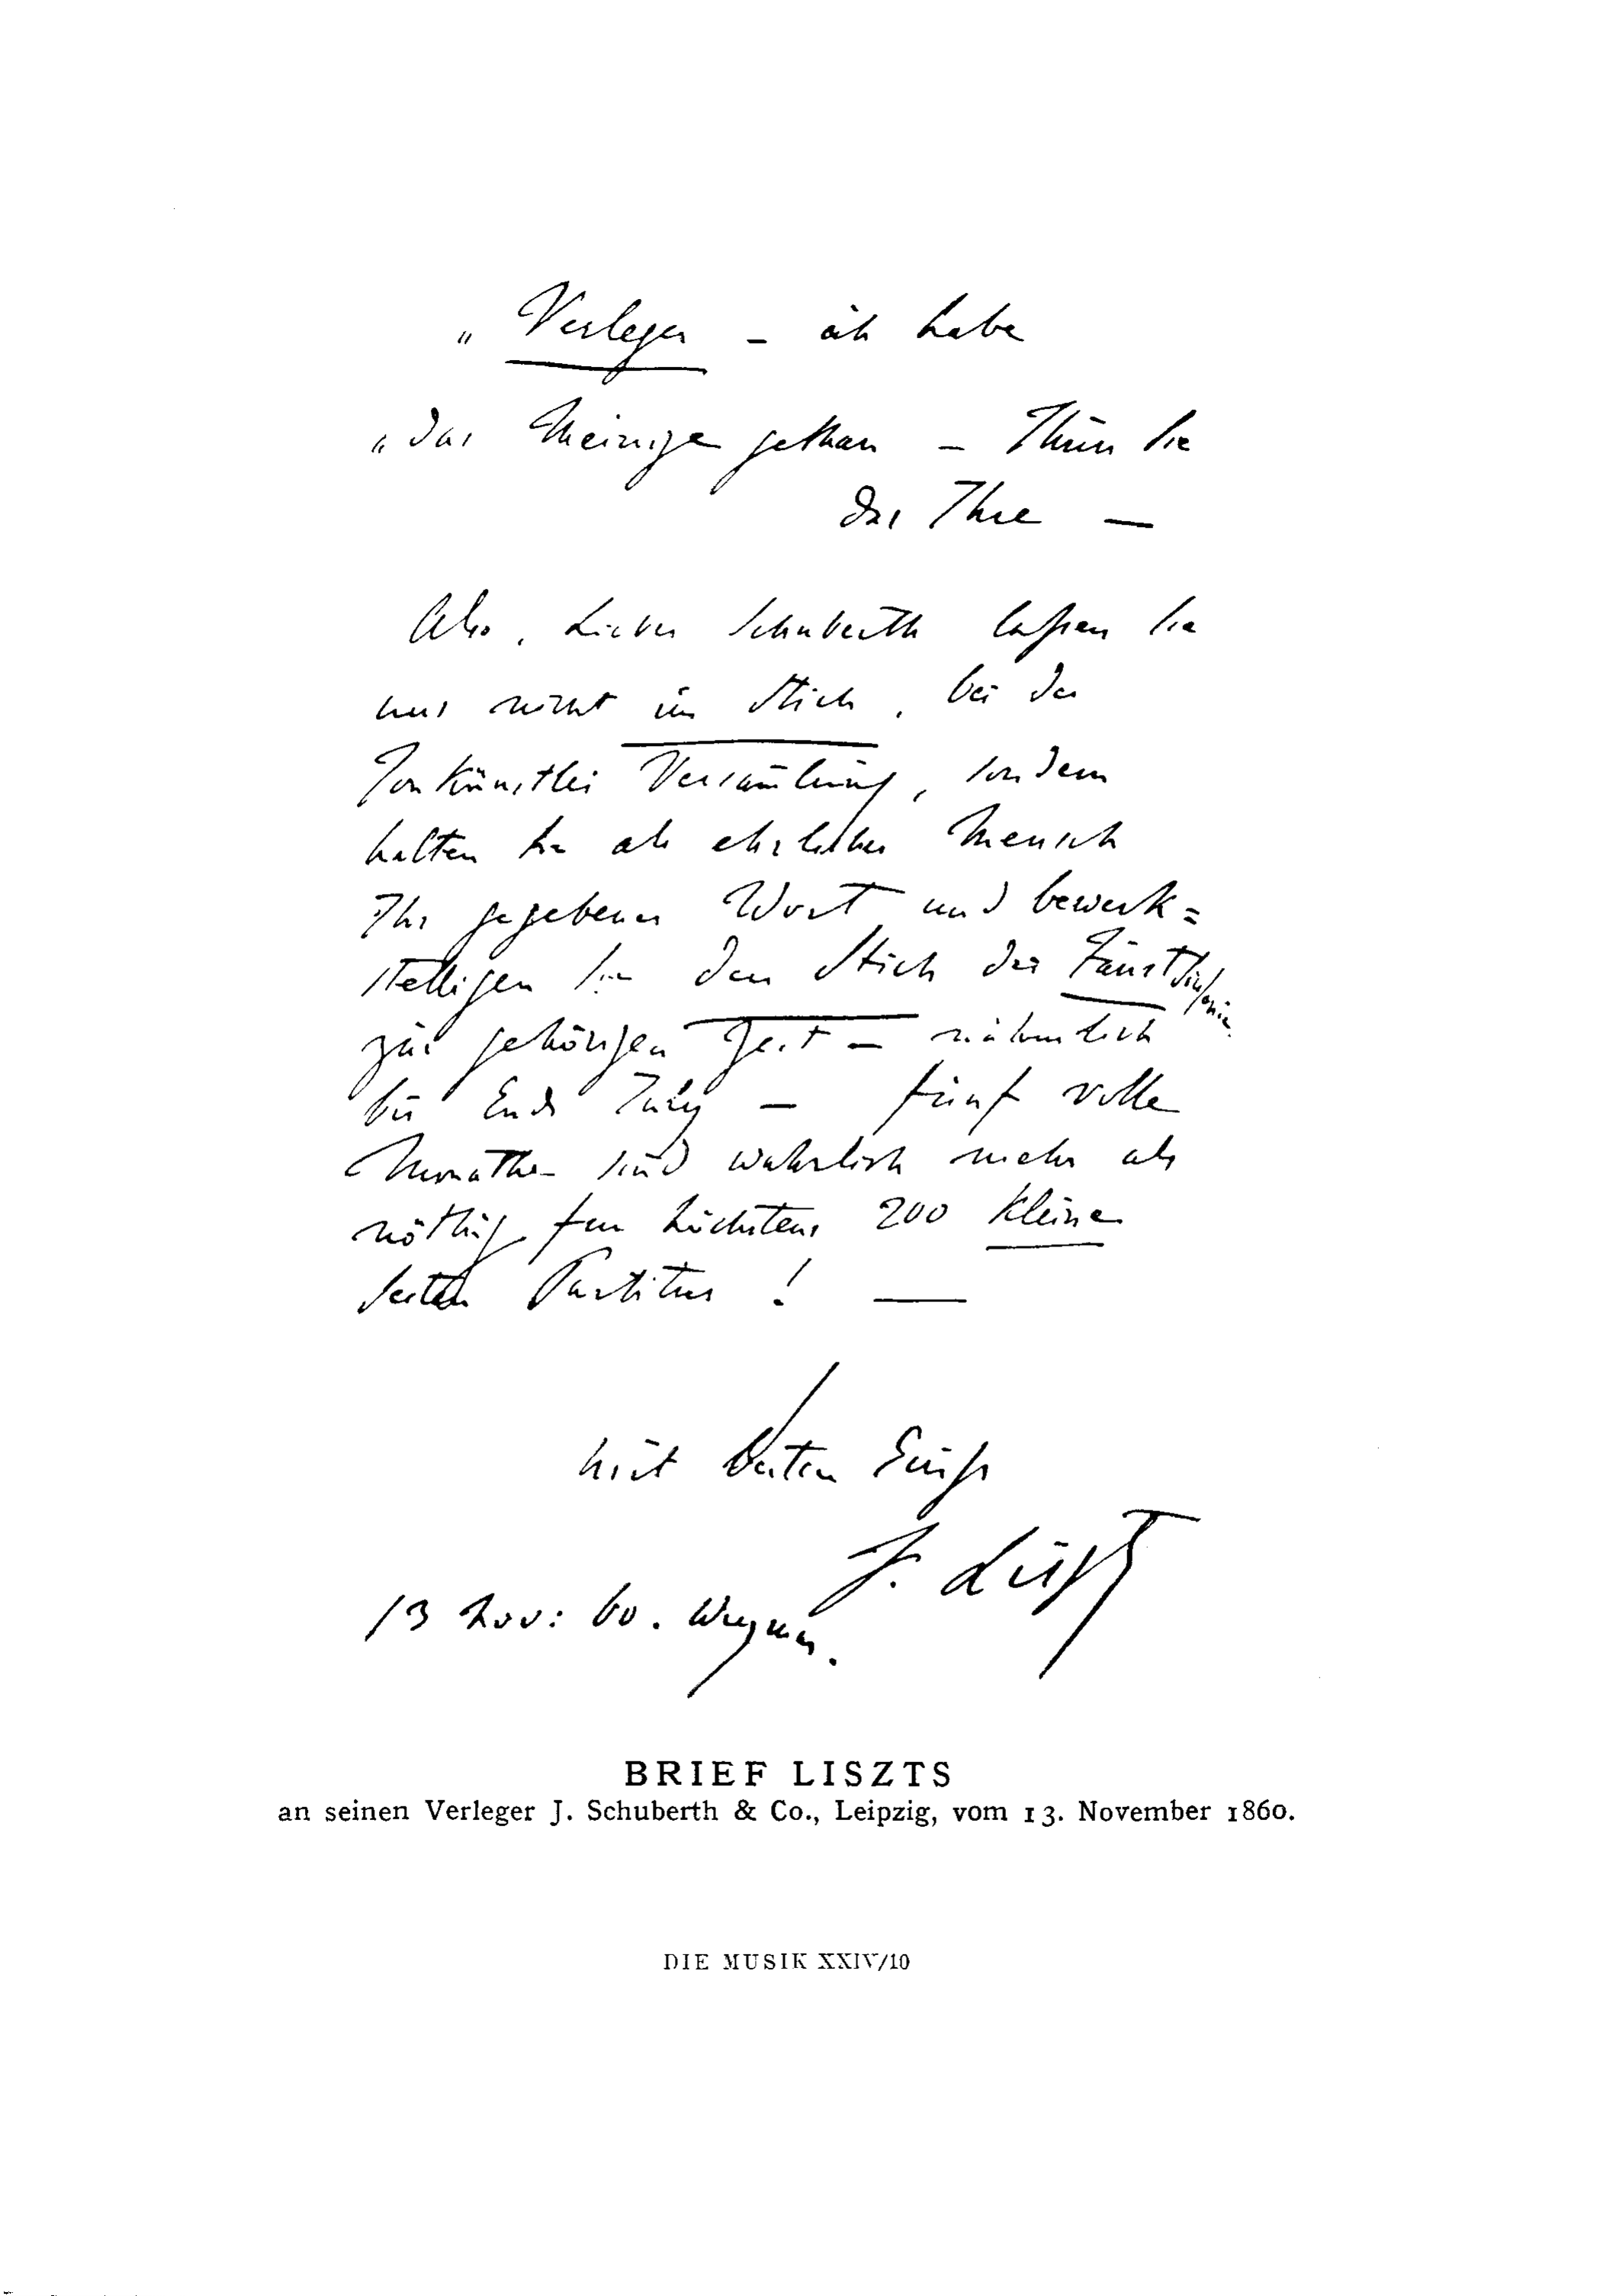 „Verleger — ich habe
„das Meinige gethan — Thun Sie
das Ihre —
Also, Lieber Schuberth lassen Sie
uns nicht im Stich, bei der
Tonkünstler Versam̄lung, sondern
halten Sie als ehrlicher Mensch
Ihr gegebenes Wort und bewerk=
stelligen Sie den Stich der Faust Sinfonie
zur gehörigen Zeit — nähmlich
bis Ende July — fünf volle
Monathe sind wahrlich mehr als
nöthig für höchstens 200 kleine
Seiten Partitur! —
Mit besten Gruss
F. Liszt
13 Nov: 60. Weymar.
BRIEF LISZTS
an seinen Verleger J. Schuberth & Co., Leipzig, vom 13. November 1860.
DIE MUSIK XXIV/10